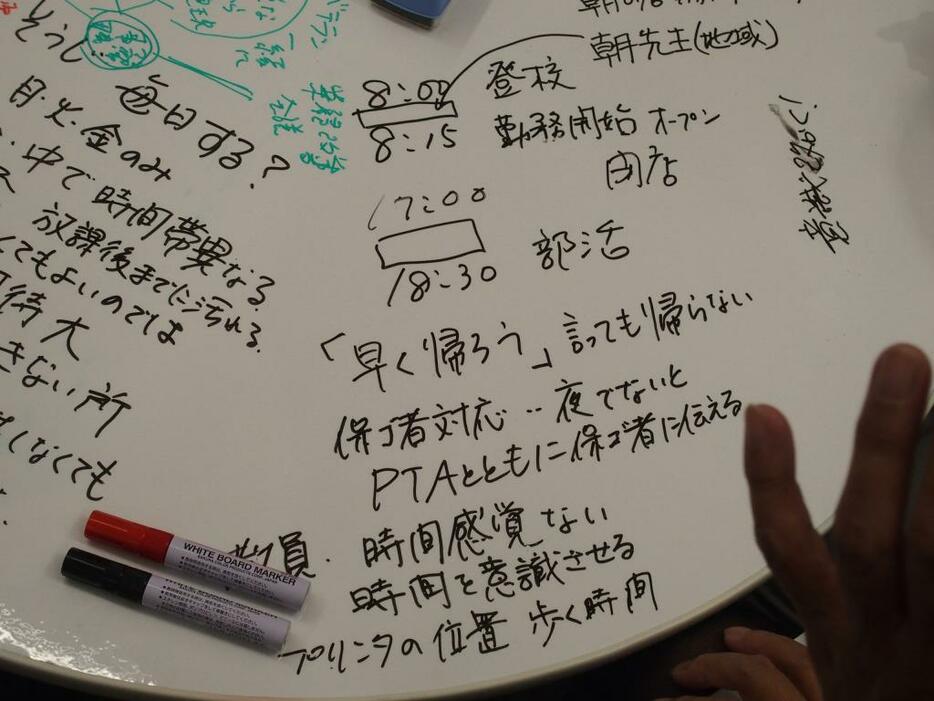 朝先生(地域)
8:00 登校
8:15 勤務開始 オープン
閉店
17:00
18:30 部活
「早く帰ろう」言っても帰らない
保ゴ者対応‥夜でないと
PTAとともに保ゴ者に伝える
員・時間感覚ない
時間を意識させる
プリンタの位置 歩く時間
そうじ
毎日する?
月・火・金のみ
中で時間帯異なる
放課後までに汚れる
てもよいのでは
待大
きない所
しなくても
ベテラン
一緒に
WHITE BOARD MARKER